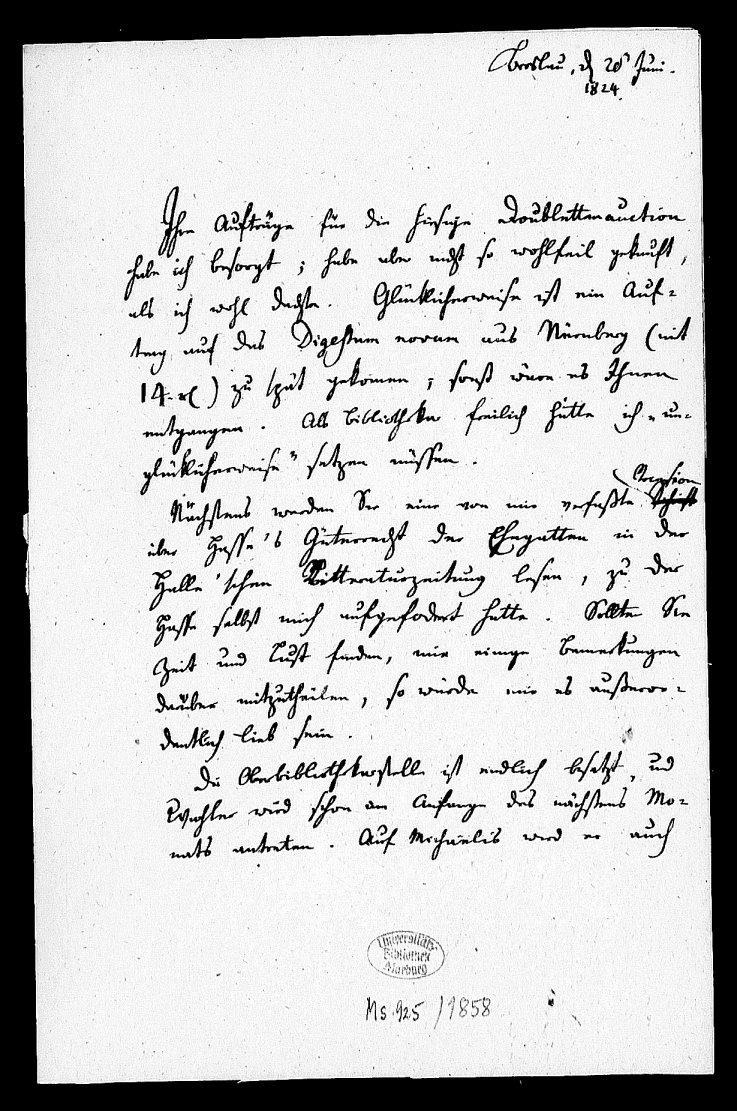 Breslau, d 28 Juni.
1824.
Ihre Aufträge für die hiesige Doublettenauction
habe ich besorgt; habe aber nicht so wohlfeil gekauft,
als ich wohl dachte. Glücklicherweise ist ein Auf-
trag auf das Digestum novum aus Nürnberg (mit
14 rl) zu spät gekommen; sonst wäre es Ihnen
entgangen. Als Bibliothekar freilich hätte ich „un-
glücklicherweise" setzen müssen.
Nächstens werden Sie eine von mir verfaßte Recension
über Hasse's Güterrecht der Ehegatten in der
Halle'schen Litteraturzeitung lesen, zu der
Hasse selbst mich aufgefodert hatte. Sollten Sie
Zeit und Lust finden, mir einige Bemerkungen
darüber mitzutheilen, so würde mir es außeror-
dentlich lieb sein.
Die Oberbibliothekarstelle ist endlich besetzt, und
Wachler wird schon am Anfange des nächsten Mo-
nats antreten. Auf Michaelis wird er auch
Universitäts-
Bibliothek
Marburg
Ms. 925/1858